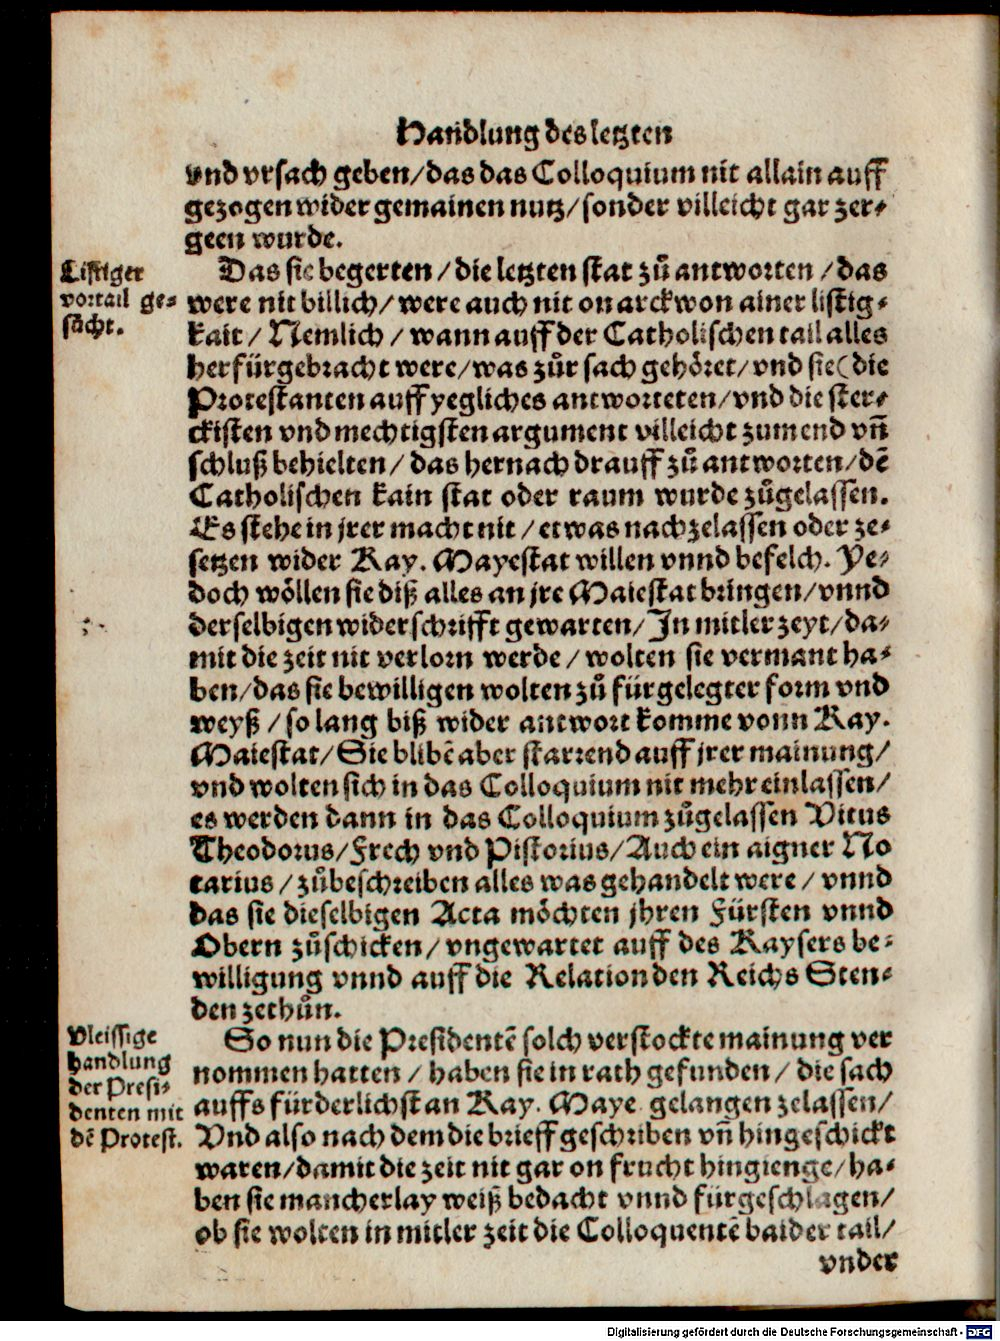 Handlung des letzten
vnd vrsach geben/das das Colloquium nit allain auff
gezogen wider gemainen nutz/sonder villeicht gar zer-
geen wurde.
Listiger
vortail ge-
sůcht.
Das sie begerten/die letzten stat zů antworten/das
were nit billich/were auch nit on arckwon ainer listig-
kait/Nemlich/wann auff der Catholischen tail alles
herfürgebracht were/was zůr sach gehöret/vnd sie (die
Protestanten auff yegliches antworteten/vnd die ster-
ckisten vnd mechtigsten argument villeicht zum end vn̄
schluß behielten/das hernach drauff zů antworten/dē
Catholischen kain stat oder raum wurde zůgelassen.
Es stehe in jrer macht nit/etwas nachzelassen oder ze-
setzen wider Kay. Mayestat willen vnnd befelch. Ye-
doch wöllen sie diß alles an jre Maiestat bringen/vnnd
derselbigen widerschrifft gewarten/In mitler zeyt/da-
mit die zeit nit verlorn werde/wolten sie vermant ha-
ben/das sie bewilligen wolten zů fürgelegter form vnd
weyß/so lang biß wider antwort komme vonn Kay.
Maiestat/Sie blibē aber starrend auff jrer mainung/
vnd wolten sich in das Colloquium nit mehr einlassen/
es werden dann in das Colloquium zůgelassen Vitus
Theodorus/Frech vnd Pistorius/Auch ein aigner No
tarius/zůbeschreiben alles was gehandelt were/vnnd
das sie dieselbigen Acta möchten jhren Fürsten vnnd
Obern zůschicken/vngewartet auff des Kaysers be-
willigung vnnd auff die Relation den Reichs Sten-
den zethůn.
Vleissige
handlung
der Presi-
denten mit
dē Protest.
So nun die Presidentē solch verstockte mainung ver
nommen hatten/haben sie in rath gefunden/die sach
auffs fürderlichst an Kay. Maye. gelangen zelassen/
Vnd also nach dem die brieff geschriben vn̄ hingeschickt
waren/damit die zeit nit gar on frucht hingienge/ha-
ben sie mancherlay weiß bedacht vnnd fürgeschlagen/
ob sie wolten in mitler zeit die Colloquentē baider tail/
vnder
Digitalisierung gefördert durch die Deutsche Forschungsgemeinschaft - DFG